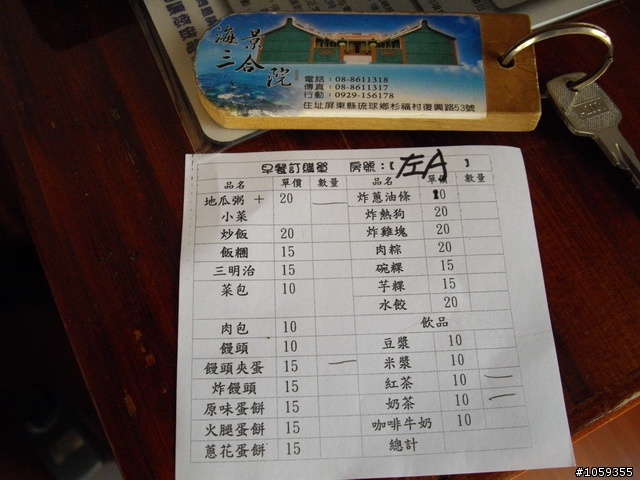 海景
三合院
電話：08-8611318
傳真：08-8611317
行動：0929-156178
住址屏東縣琉球鄉杉福村復興路53號
早餐訂購單 房號：【左A】
品名 單價 數量 品名 單價 數量
地瓜粥 + 20 一 炸蔥油條 10
小菜 炸熱狗 20
炒飯 20 炸雞塊 20
飯糰 15 肉粽 20
三明治 15 碗粿 15
菜包 10 芋粿 15
水餃 20
肉包 10 飲品
饅頭 10 豆漿 10
饅頭夾蛋 15 一 米漿 10
炸饅頭 15 紅茶 10 一
原味蛋餅 15 奶茶 10 一
火腿蛋餅 15 咖啡牛奶 10
蔥花蛋餅 15 總計
#1059355